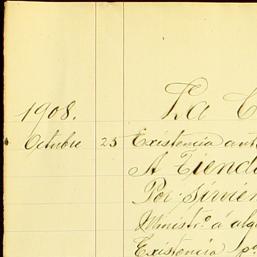 1908.
La C
Octubre 25 Existencia ant
A Tiend
Por simien
Ministr.o á alg
Existencia pa